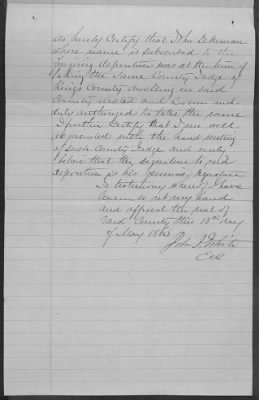 do hereby Certify that John Dikeman
whose name is subscribed to the
foregoing deposition was at the time of
taking the same County Judge of
Kings County dwelling in said
County elected and sworn and
duly authorized to take the same
I further Certify that I am well
acquainted with the hand writing
of such County Judge and verily
believe that the signature to said
deposition is his genuine signature
In testimony whereof I have
hereunto set my hand
and affixed the seal of
said County this 13th day
of May 186
John J. White
Clk